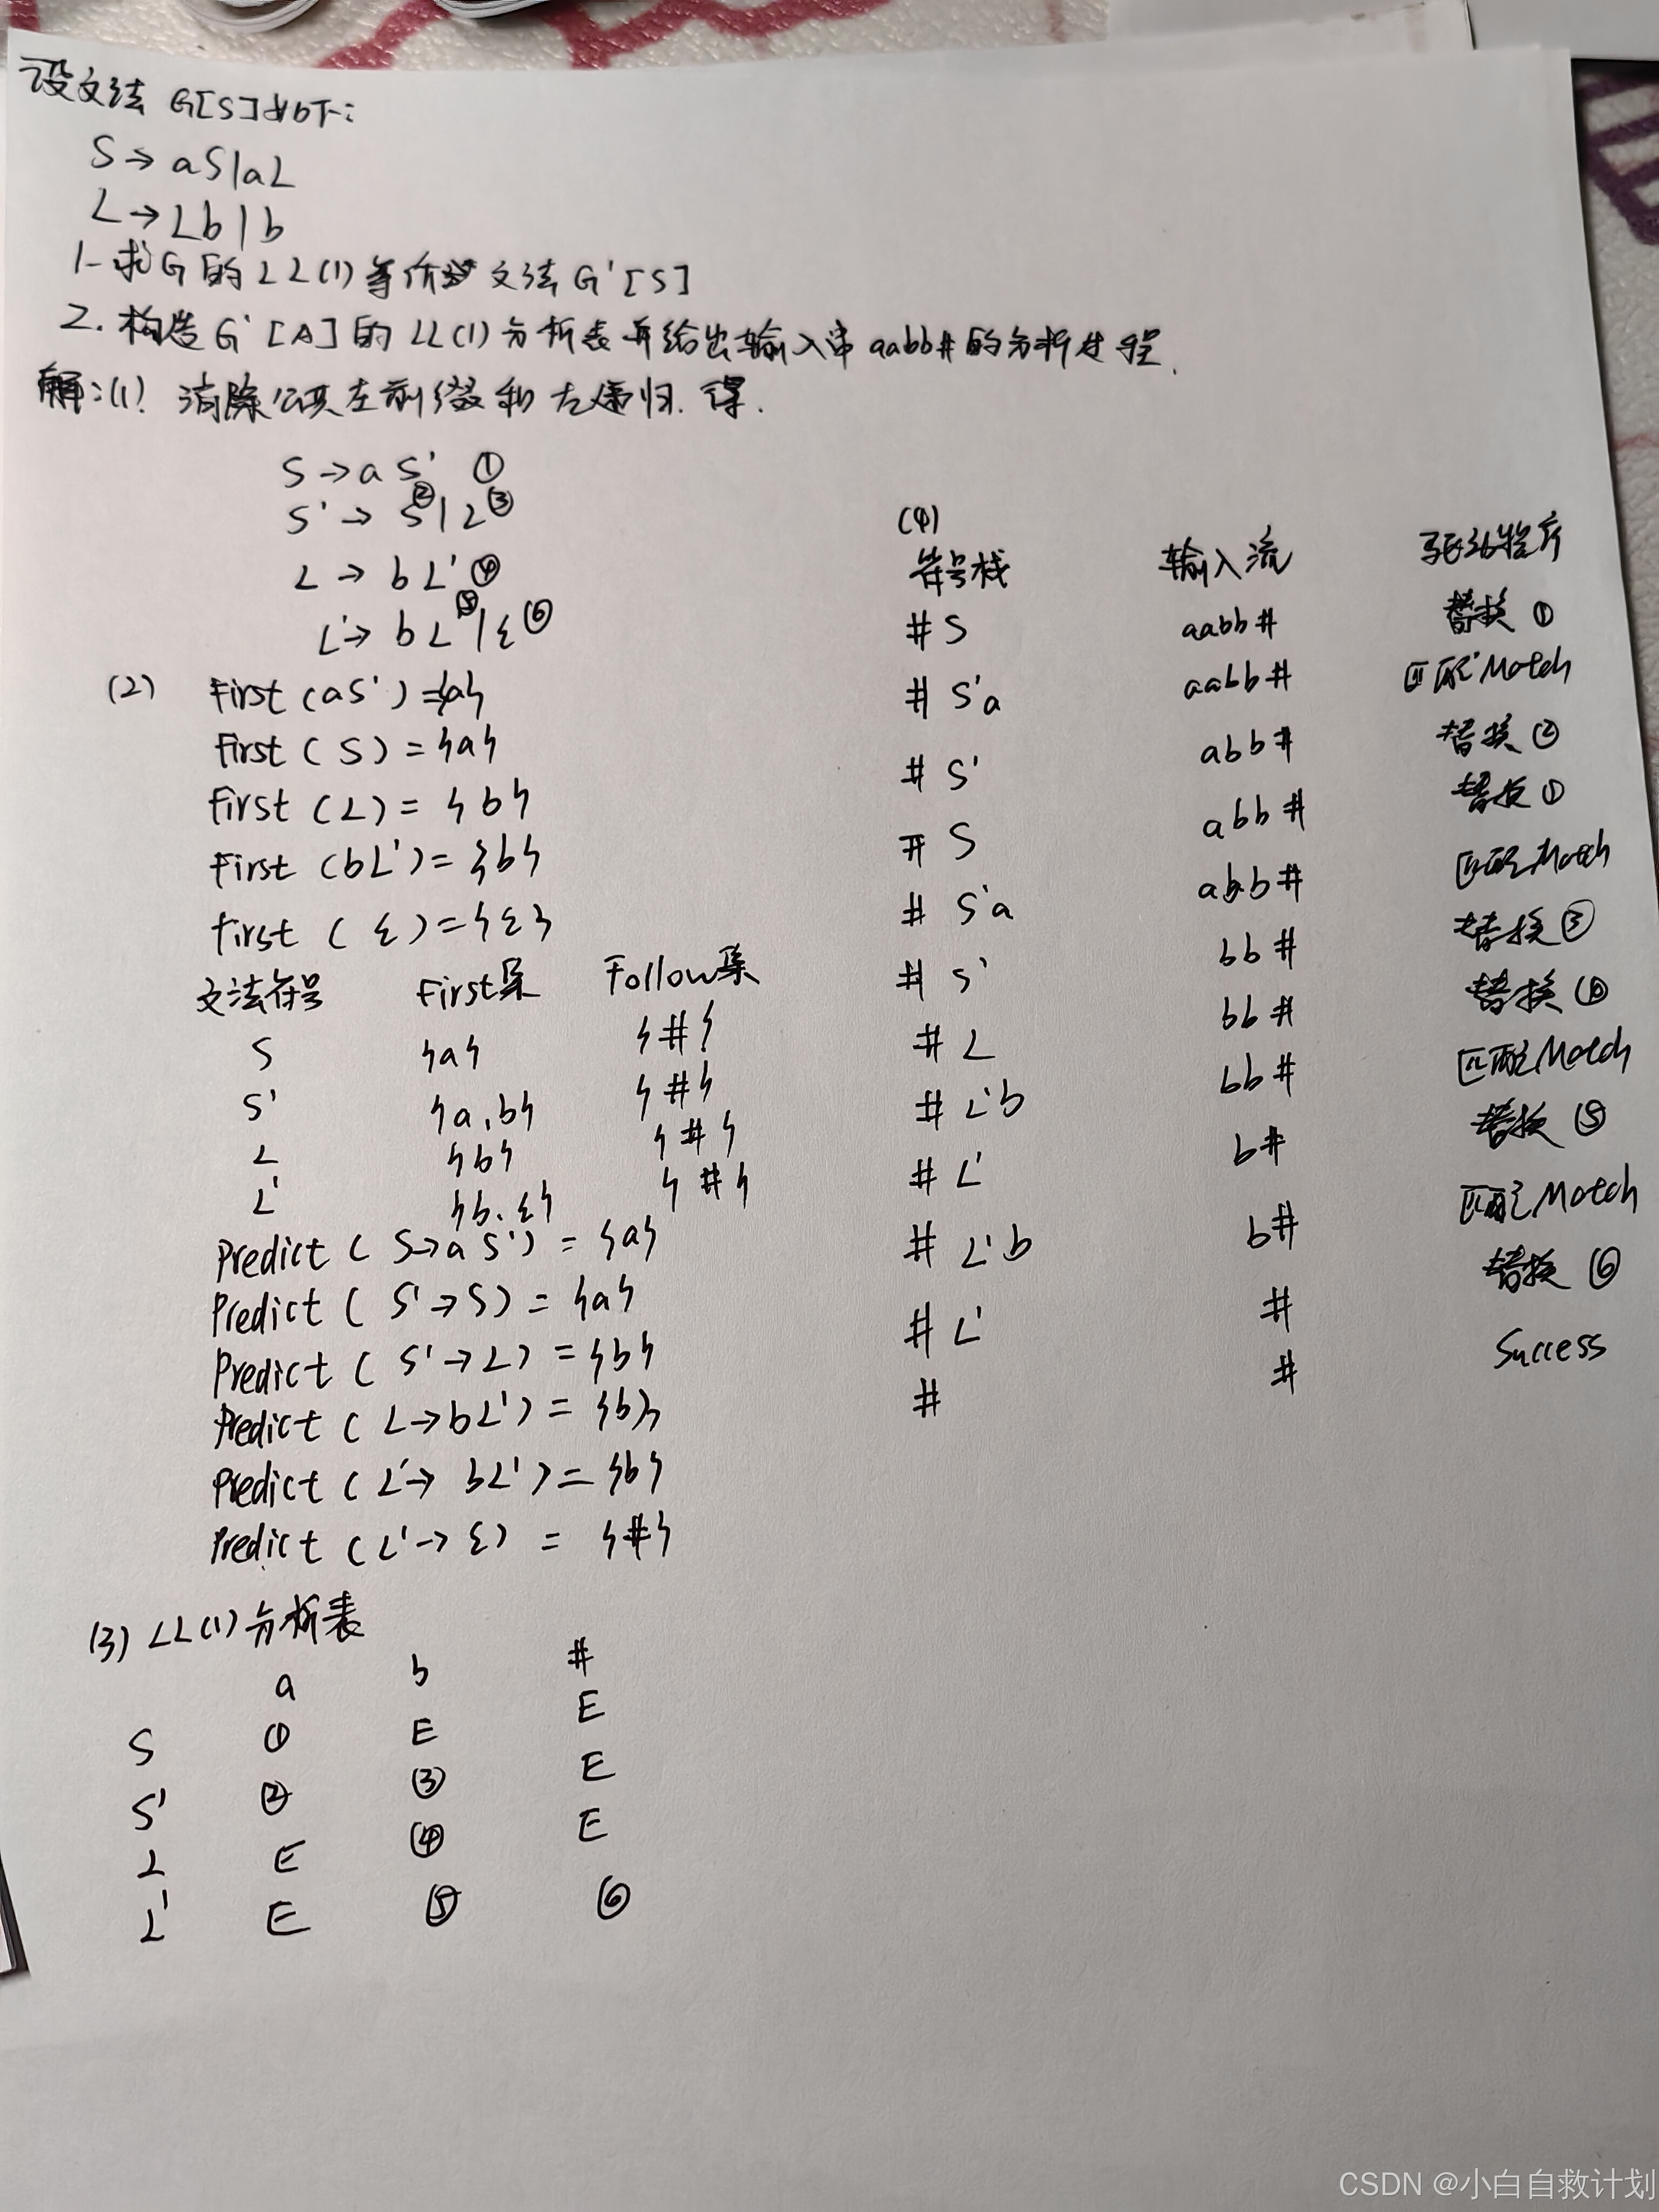 设文法 G[S]如下:
S → aS|aL
L → Lb|b
1-求G的LL(1)等价文法 G'[S]
2.构造G'[A]的LL(1)分析表并给出输入串aabb#的分析过程.
解:(1) 消除公共左前缀和左递归.得.
S → a S' ①
S' → S②|L③
L → bL'④
L' → bL'⑤|ε⑥
(2) First(aS')={a}
First(S)={a}
First(L)={b}
First(bL')={b}
First(ε)={ε}
文法符号 First集 Follow集
S {a} {#}
S' {a,b} {#}
L {b} {#}
L' {b.ε} {#}
Predict(S→aS')={a}
Predict(S'→S)={a}
Predict(S'→L)={b}
Predict(L→bL')={b}
Predict(L'→bL')={b}
Predict(L'→ε)={#}
(3) LL(1)分析表
a b #
S ① E E
S' ② ③ E
L E ④ E
L' E ⑤ ⑥
(4)
符号栈 输入流 驱动程序
#S aabb# 替换①
#S'a aabb# 匹配Match
#S' abb# 替换②
#S abb# 替换①
#S'a abb# 匹配Match
#S' bb# 替换③
#L bb# 替换④
#L'b bb# 匹配Match
#L' b# 替换⑤
#L'b b# 匹配Match
#L' # 替换⑥
# # Success
CSDN @小白自救计划